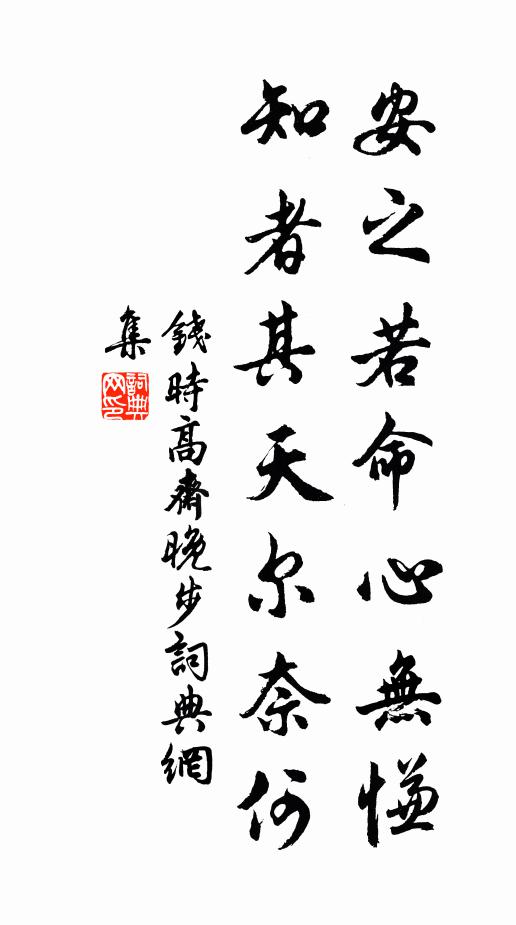 安之若命心無慊
知者其天尔奈何
錢時高齋晚步詞典網
集
詞典
网印